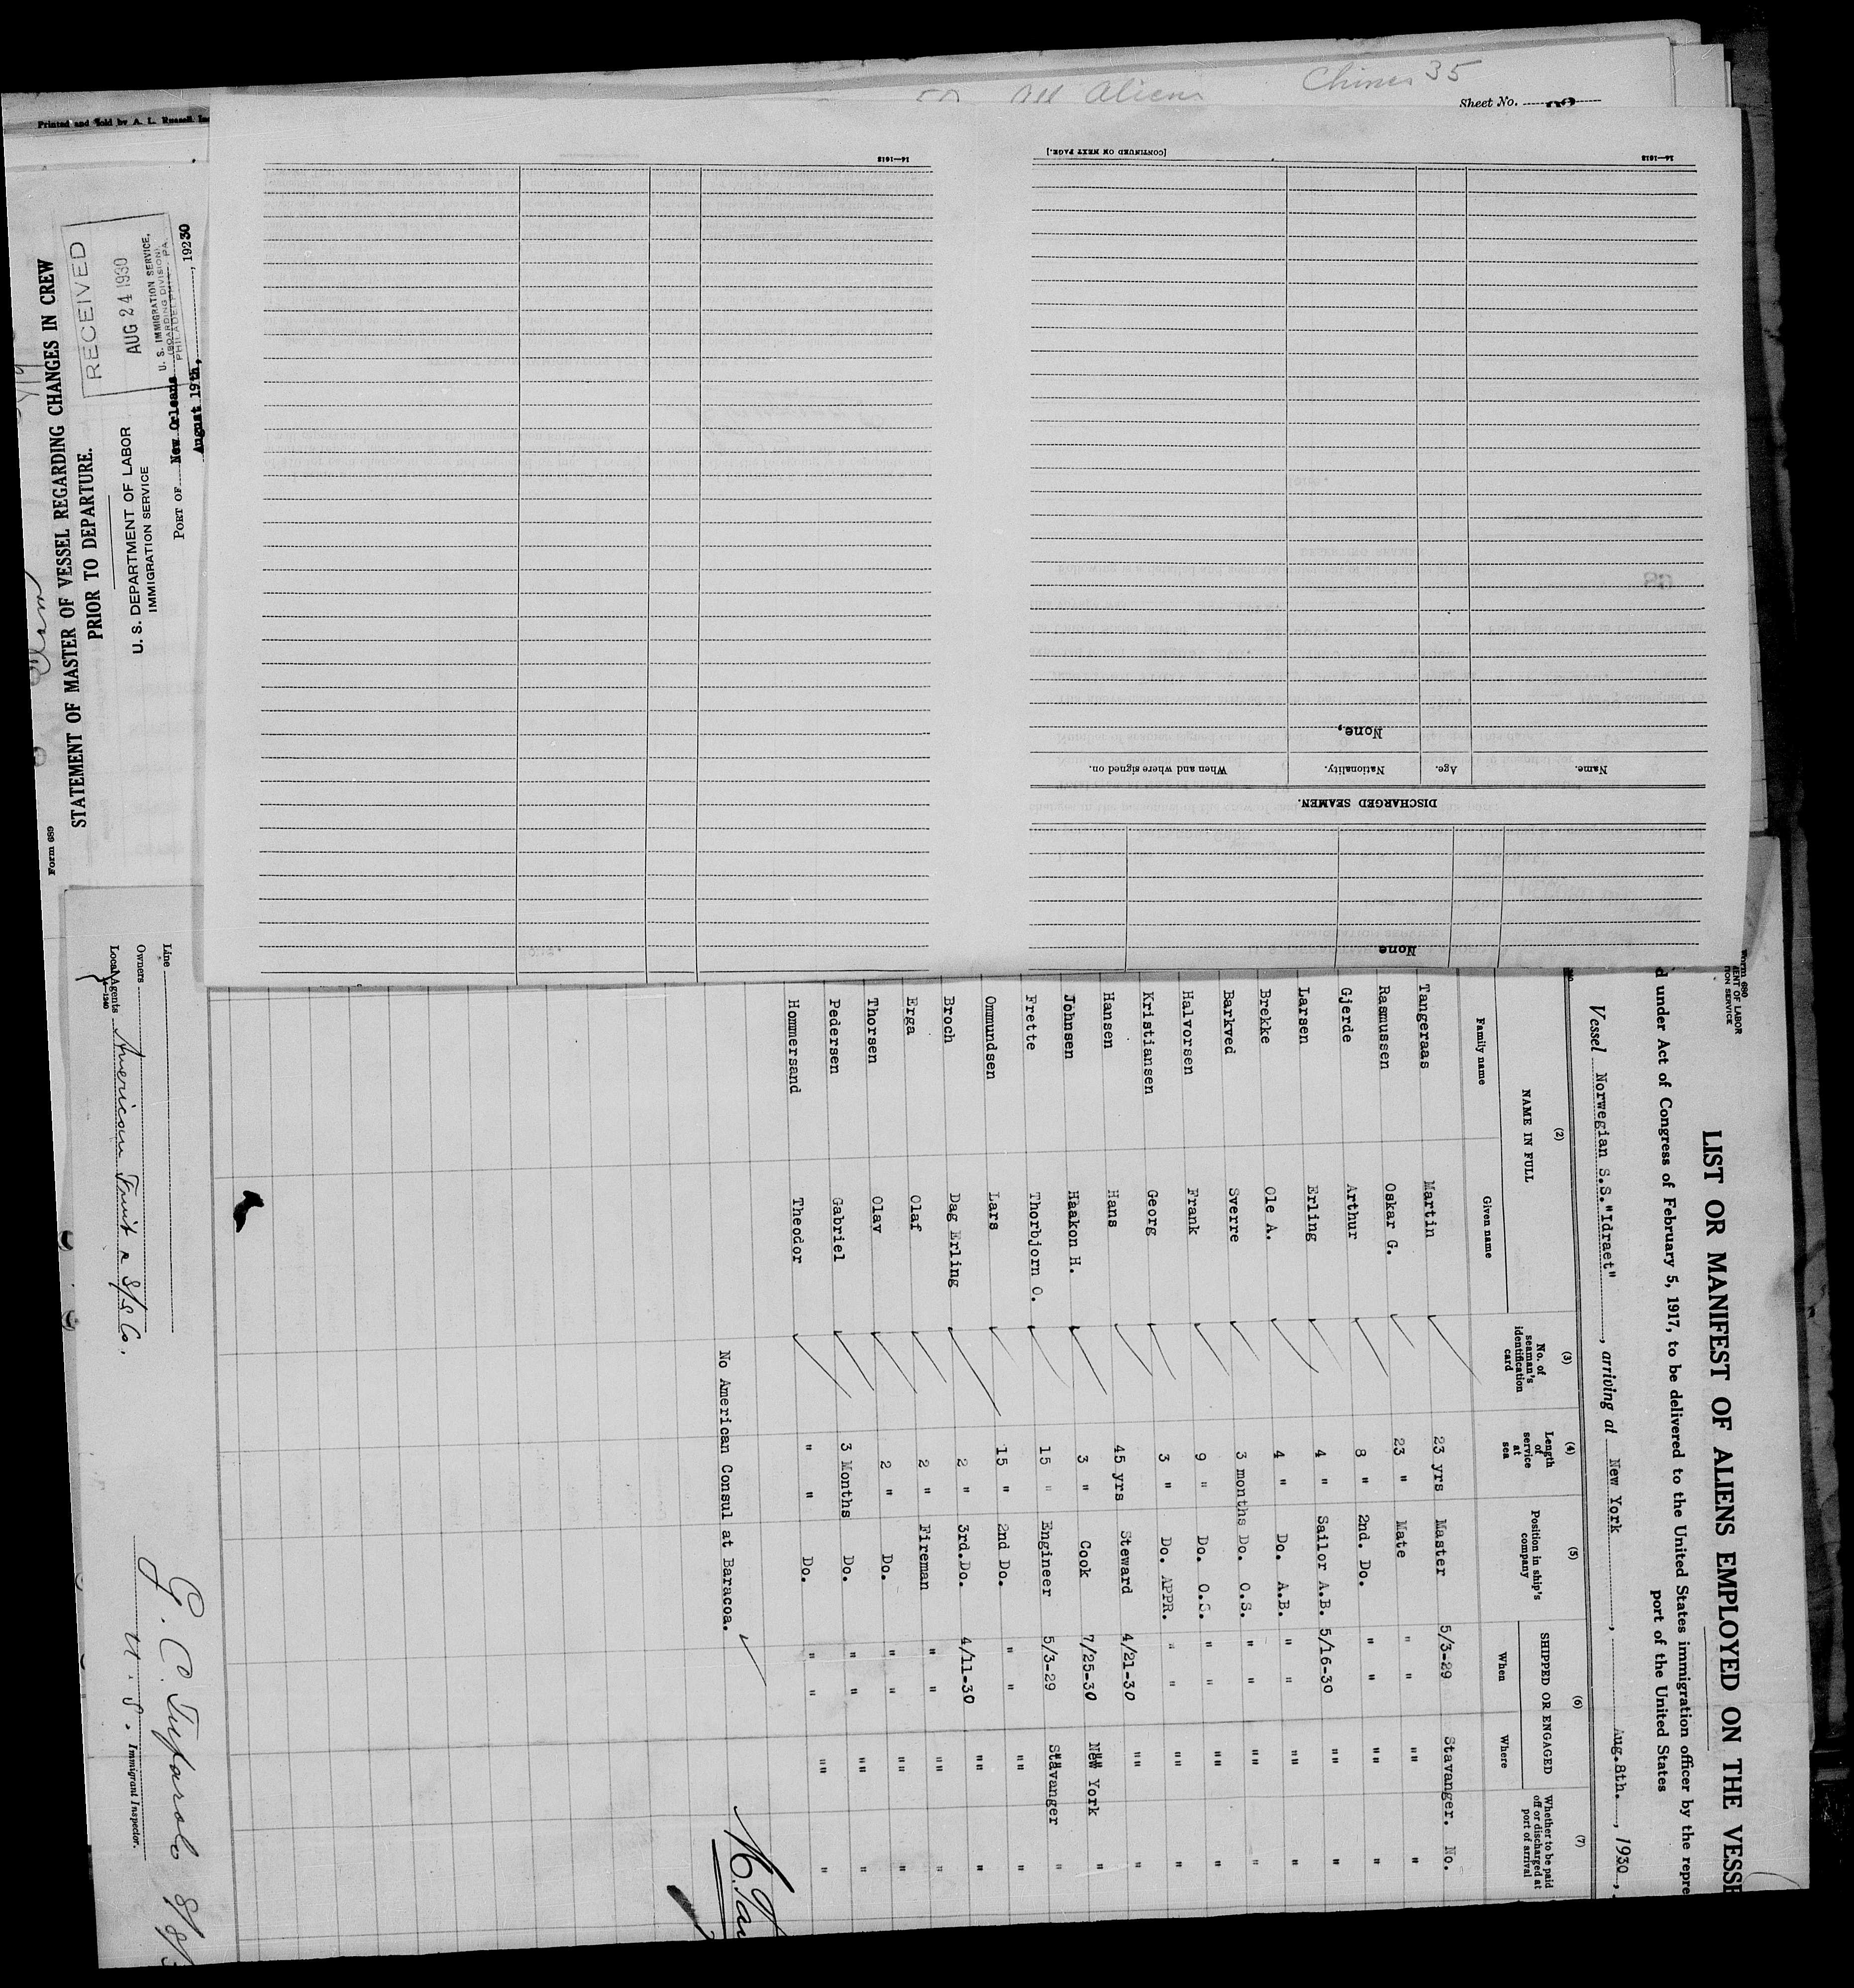 Chines 35
All Aliens
Sheet No.
Printed and Sold by A. L. Russell
Form 689
STATEMENT OF MASTER OF VESSEL REGARDING CHANGES IN CREW
PRIOR TO DEPARTURE.
U. S. DEPARTMENT OF LABOR
IMMIGRATION SERVICE
RECEIVED
AUG 24 1930
U. S. IMMIGRATION SERVICE,
(BOARDING DIVISION)
PHILADELPHIA, PA.
PORT OF New Orleans
August 19th, 19230
14—1618
[CONTINUED ON NEXT PAGE.]
14—1618
None
DISCHARGED SEAMEN.
Name. Age. Nationality. When and where signed on.
None,
LIST OR MANIFEST OF ALIENS EMPLOYED ON THE VESSE
d under Act of Congress of February 5, 1917, to be delivered to the United States immigration officer by the repre
port of the United States
Vessel Norwegian S.S."Idraet", arriving at New York, Aug.8th., 1930,
(2) (3) (4) (5) (6) (7)
NAME IN FULL
Family name Given name
No. of seaman's identification card
Length of service at sea
Position in ship's company
SHIPPED OR ENGAGED
When Where
Whether to be paid off or discharged at port of arrival
Tangeraas Martin 23 yrs Master 5/3-29 Stavanger. No.
Rasmussen Oskar G. 23 " Mate " " "" "
Gjerde Arthur 8 " 2nd. Do. " " "" "
Larsen Erling 4 " Sailor A.B. 5/16-30 "" "
Brekke Ole A. 4 " Do. A.B. " " "" "
Barkved Sverre 3 months Do. O.S. " " "" "
Halvorsen Frank 9 " Do. O.S. " " "" "
Kristiansen Georg 3 " Do. APPR. " " "" "
Hansen Hans 45 yrs Steward 4/21-30 "" "
Johnsen Haakon H. 3 " Cook 7/25-30 New York "
Frette Thorbjorn O. 15 " Engineer 5/3-29 Stavanger "
Ommundsen Lars 15 " 2nd Do. " " "" "
Broch Dag Erling 2 " 3rd.Do. 4/11-30 "" "
Erga Olaf 2 " Fireman " " "" "
Thorsen Olav 2 " Do. " " "" "
Pedersen Gabriel 3 Months Do. " " "" "
Hommersand Theodor " " Do. " " "" "
No American Consul at Baracoa.
Line
Owners
Local Agents American Fruit & S/S Co.
14—1240
U.S. Immigrant Inspector.